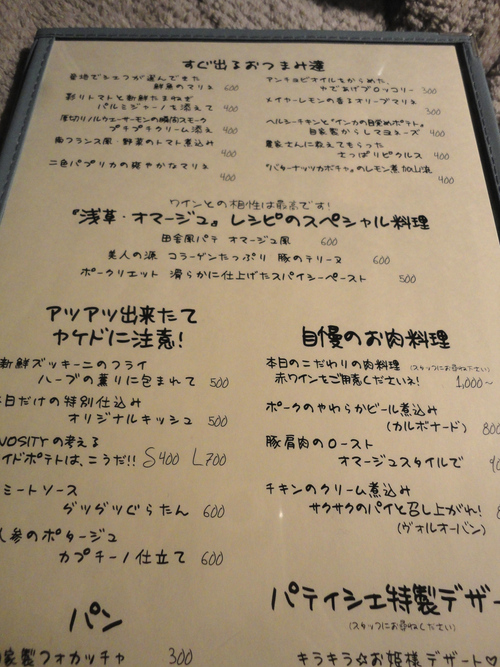 すぐ出るおつまみ達
産地でシェフが選んできた
鮮魚のマリネ 600
彩りトマトと新鮮たまねぎ
パルミジャーノを添えて 400
厚切りノルウェーサーモンの瞬間スモーク
プチプチクリーム添え 400
南フランス風・野菜のトマト煮込み
400
二色パプリカの爽やかなマリネ
400
アンチョビオイルをからめた、
やであげブロッコリー 300
メイヤーレモンの香るオリーブマリネ
300
ヘルシーチキンと『インカの目覚めポテト』
自家製からしマヨネーズ 400
農家さんに教えてもらった
さっぱりピクルス 400
『バターナッツカボチャ』のレモン煮
400
ワインとの相性は最高です!
『浅草・オマージュ』レシピのスペシャル料理
田舎風パテ オマージュ風 600
美人の源 コラーゲンたっぷり 豚のテリーヌ 600
ポークリエット 滑らかに仕上げたスパイシーペースト 500
アツアツ出来たて
ヤケドに注意!
新鮮ズッキーニのフライ
ハーブの薫りに包まれて 500
日だけの特別仕込み
オリジナルキッシュ 500
VOSITYの考える
イドポテトは、こうだ!! S400 L700
ミートソース
グツグツぐらたん 600
人参のポタージュ
カプチーノ仕立て 600
パン
家製フォカッチャ 300
自慢のお肉料理
本日のこだわりの肉料理 (スタッフにお尋ねください)
赤ワインをご用意くださいネ! 1,000~
ポークのやわらかビール煮込み
(カルボナード) 800
豚肩肉のロースト
オマージュスタイルで
チキンのクリーム煮込み
サクサクのパイと召し上がれ!
(ヴォルオーバン)
パティシエ特製デザー
(スタッフにお尋ねください)
キラキラ☆お姫様デザート♡